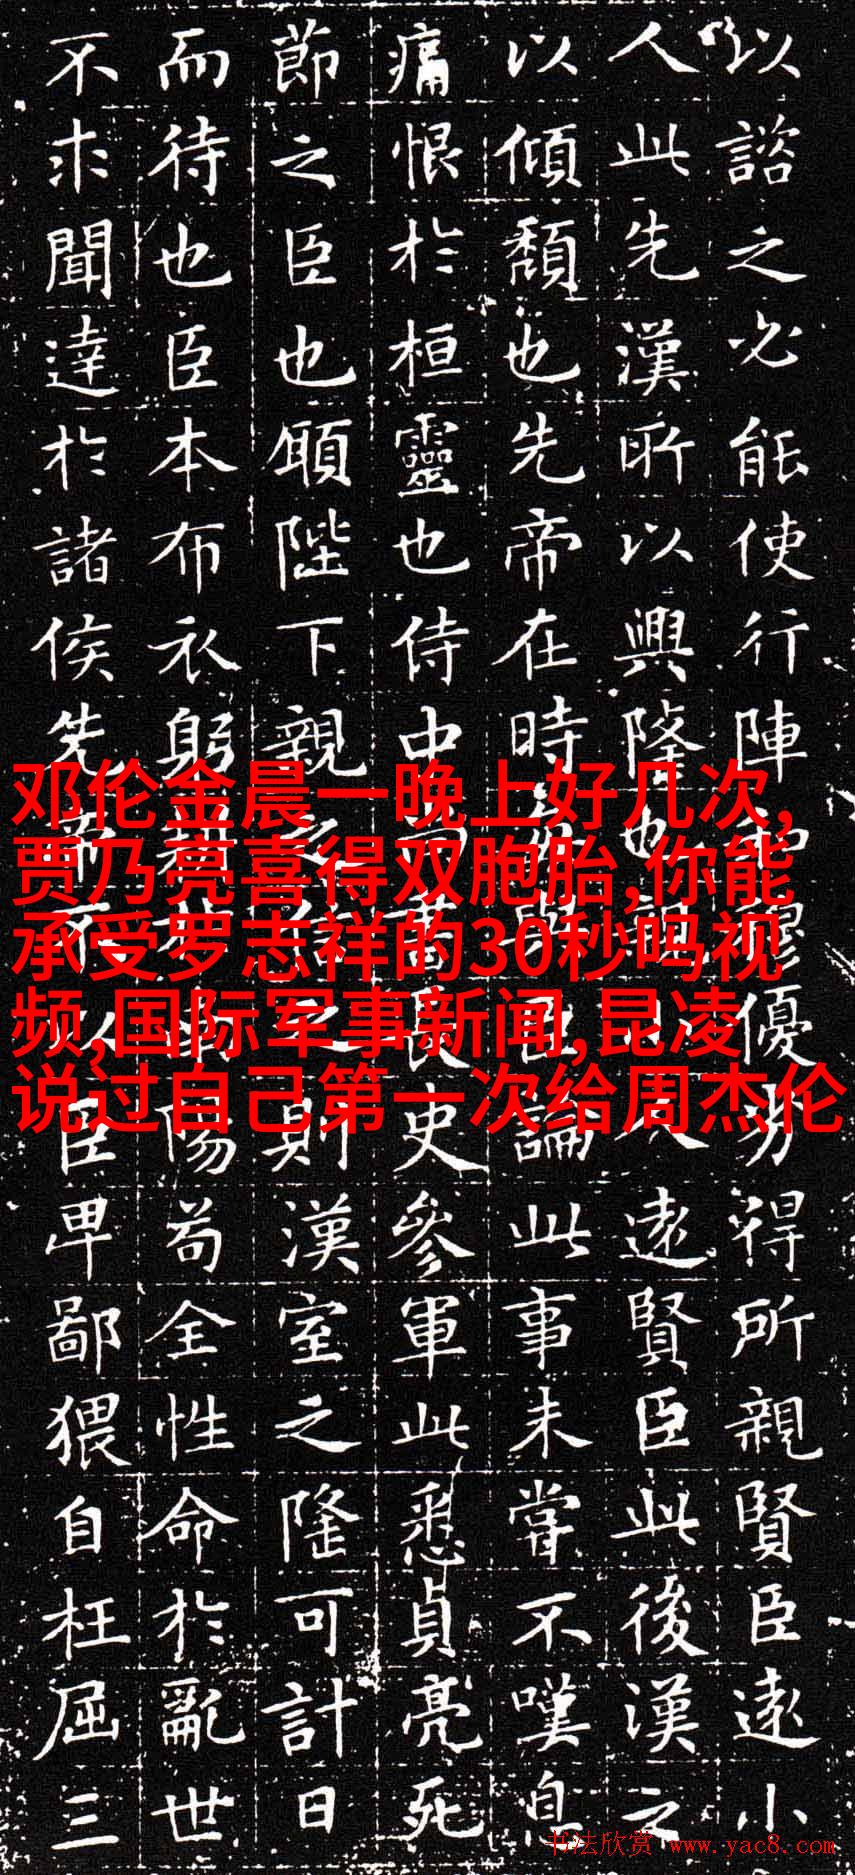 以諮之必能使行陣和穆優劣得所親賢臣遠小
人此先漢所以興隆也親小人遠賢臣此後漢之
以傾頹也先帝在時每與臣論此事未嘗不嘆息
痛恨於桓靈也侍中尚書長史參軍此悉貞亮死
節之臣也願陛下親之信之則漢室之隆可計日
而待也臣本布衣躬耕於南陽苟全性命於亂世
不求聞達於諸侯先帝不以臣卑鄙猥自枉屈三
邓伦金晨一晚上好几次,
贾乃亮喜得双胞胎,你能
承受罗志祥的30秒吗视
频,国际军事新闻,昆凌
说过自己第一次给周杰伦
书法欣赏 www.yac8.com